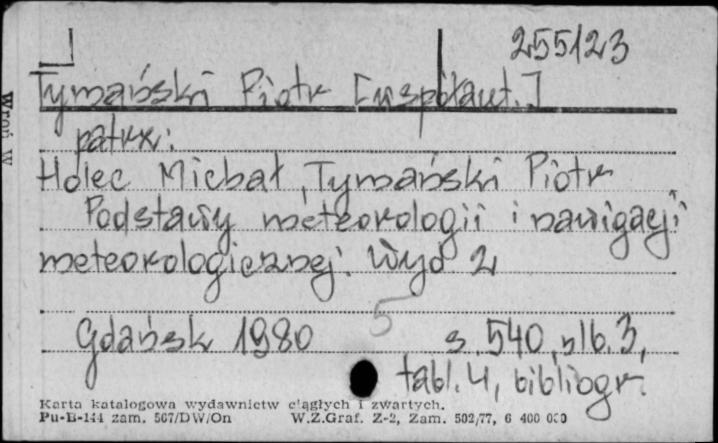 255123
Tymański Piotr [współaut.]
patrz:
Holec Michał, Tymański Piotr
Podstawy meteorologii i nawigacji
meteorologicznej. Wyd 2
5
Gdańsk 1980 s. 540, nlb. 3,
tabl. 4, bibliogr.
Karta katalogowa wydawnictw ciągłych i zwartych.
Pu-B-144 zam. 567/DW/On W.Z.Graf. Z-2, Zam. 502/77, 6 400 000